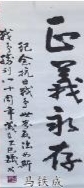 正義永存
纪念抗日战争世界反法西斯
战争胜利六十周年
马铁成